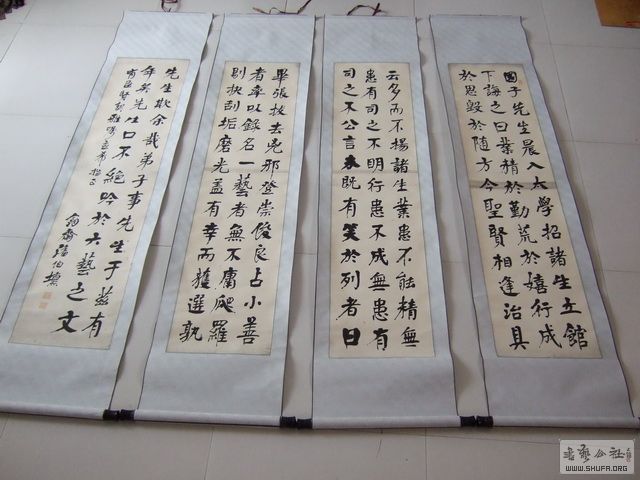 國子先生晨入太學招諸生立館
下誨之曰業精於勤荒於嬉行成
於思毀於随方今聖賢相逢治具
云多而不揚諸生業患不能精無
患有司之不明行患不成無患有
司之不公言未既有笑於列者曰
畢張拔去兇邪登崇俊良占小善
者率以錄名一藝者無不庸爬羅
剔抉刮垢磨光盖有幸而獲選孰
先生欺余哉弟子事先生于茲有
年矣先生口不絕吟於六藝之文
WWW.SHUFA.ORG